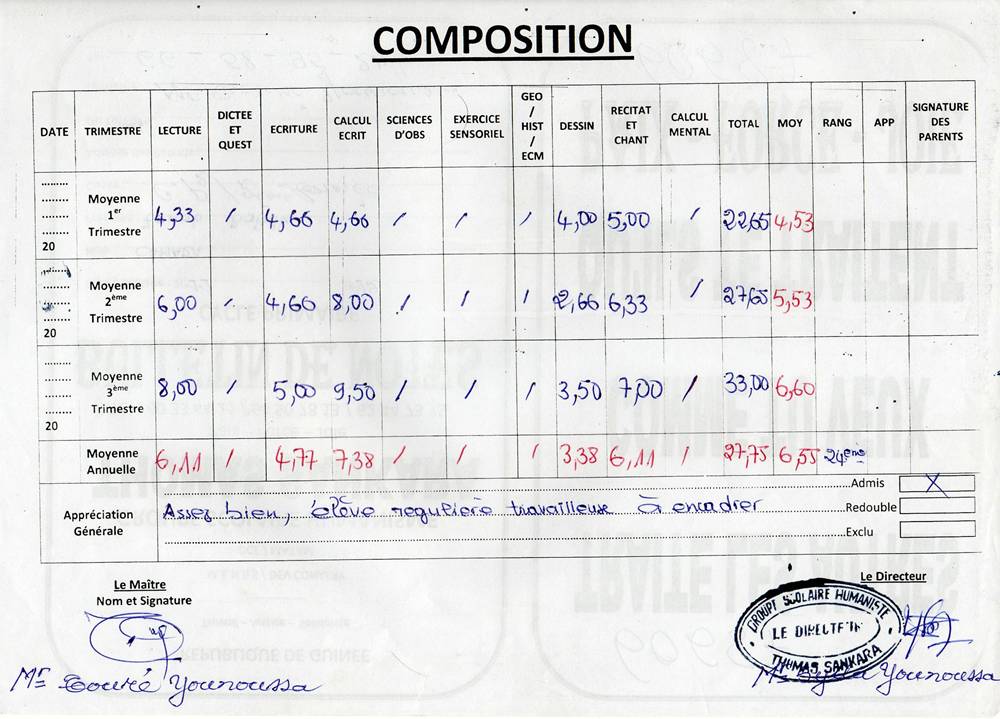 COMPOSITION
DATE TRIMESTRE LECTURE DICTEE ET QUEST ECRITURE CALCUL ECRIT SCIENCES D'OBS EXERCICE SENSORIEL GEO / HIST / ECM DESSIN RECITAT ET CHANT CALCUL MENTAL TOTAL MOY RANG APP SIGNATURE DES PARENTS
20 Moyenne 1er Trimestre 4,33 / 4,66 4,66 / / / 4,00 5,00 / 22,65 4,53
20 Moyenne 2ème Trimestre 6,00 / 4,66 8,00 / / / 2,66 6,33 / 27,65 5,53
20 Moyenne 3ème Trimestre 8,00 / 5,00 9,50 / / / 3,50 7,00 / 33,00 6,60
Moyenne Annuelle 6,11 / 4,77 7,38 / / / 3,38 6,11 / 27,75 6,55 24eme
Admis X
Appréciation Générale Assez bien, élève regulière travailleuse à encadrer Redouble
Exclu
Le Maître
Nom et Signature
Le Directeur
GROUPE SCOLAIRE HUMANISTE
LE DIRECTEUR
THOMAS SANKARA
Mr Touré Younoussa
Mr Sylla Younoussa